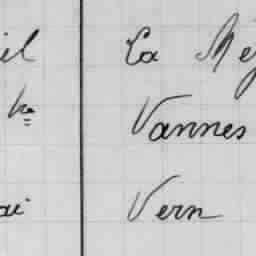 il La Mé
Vannes
ai Vern